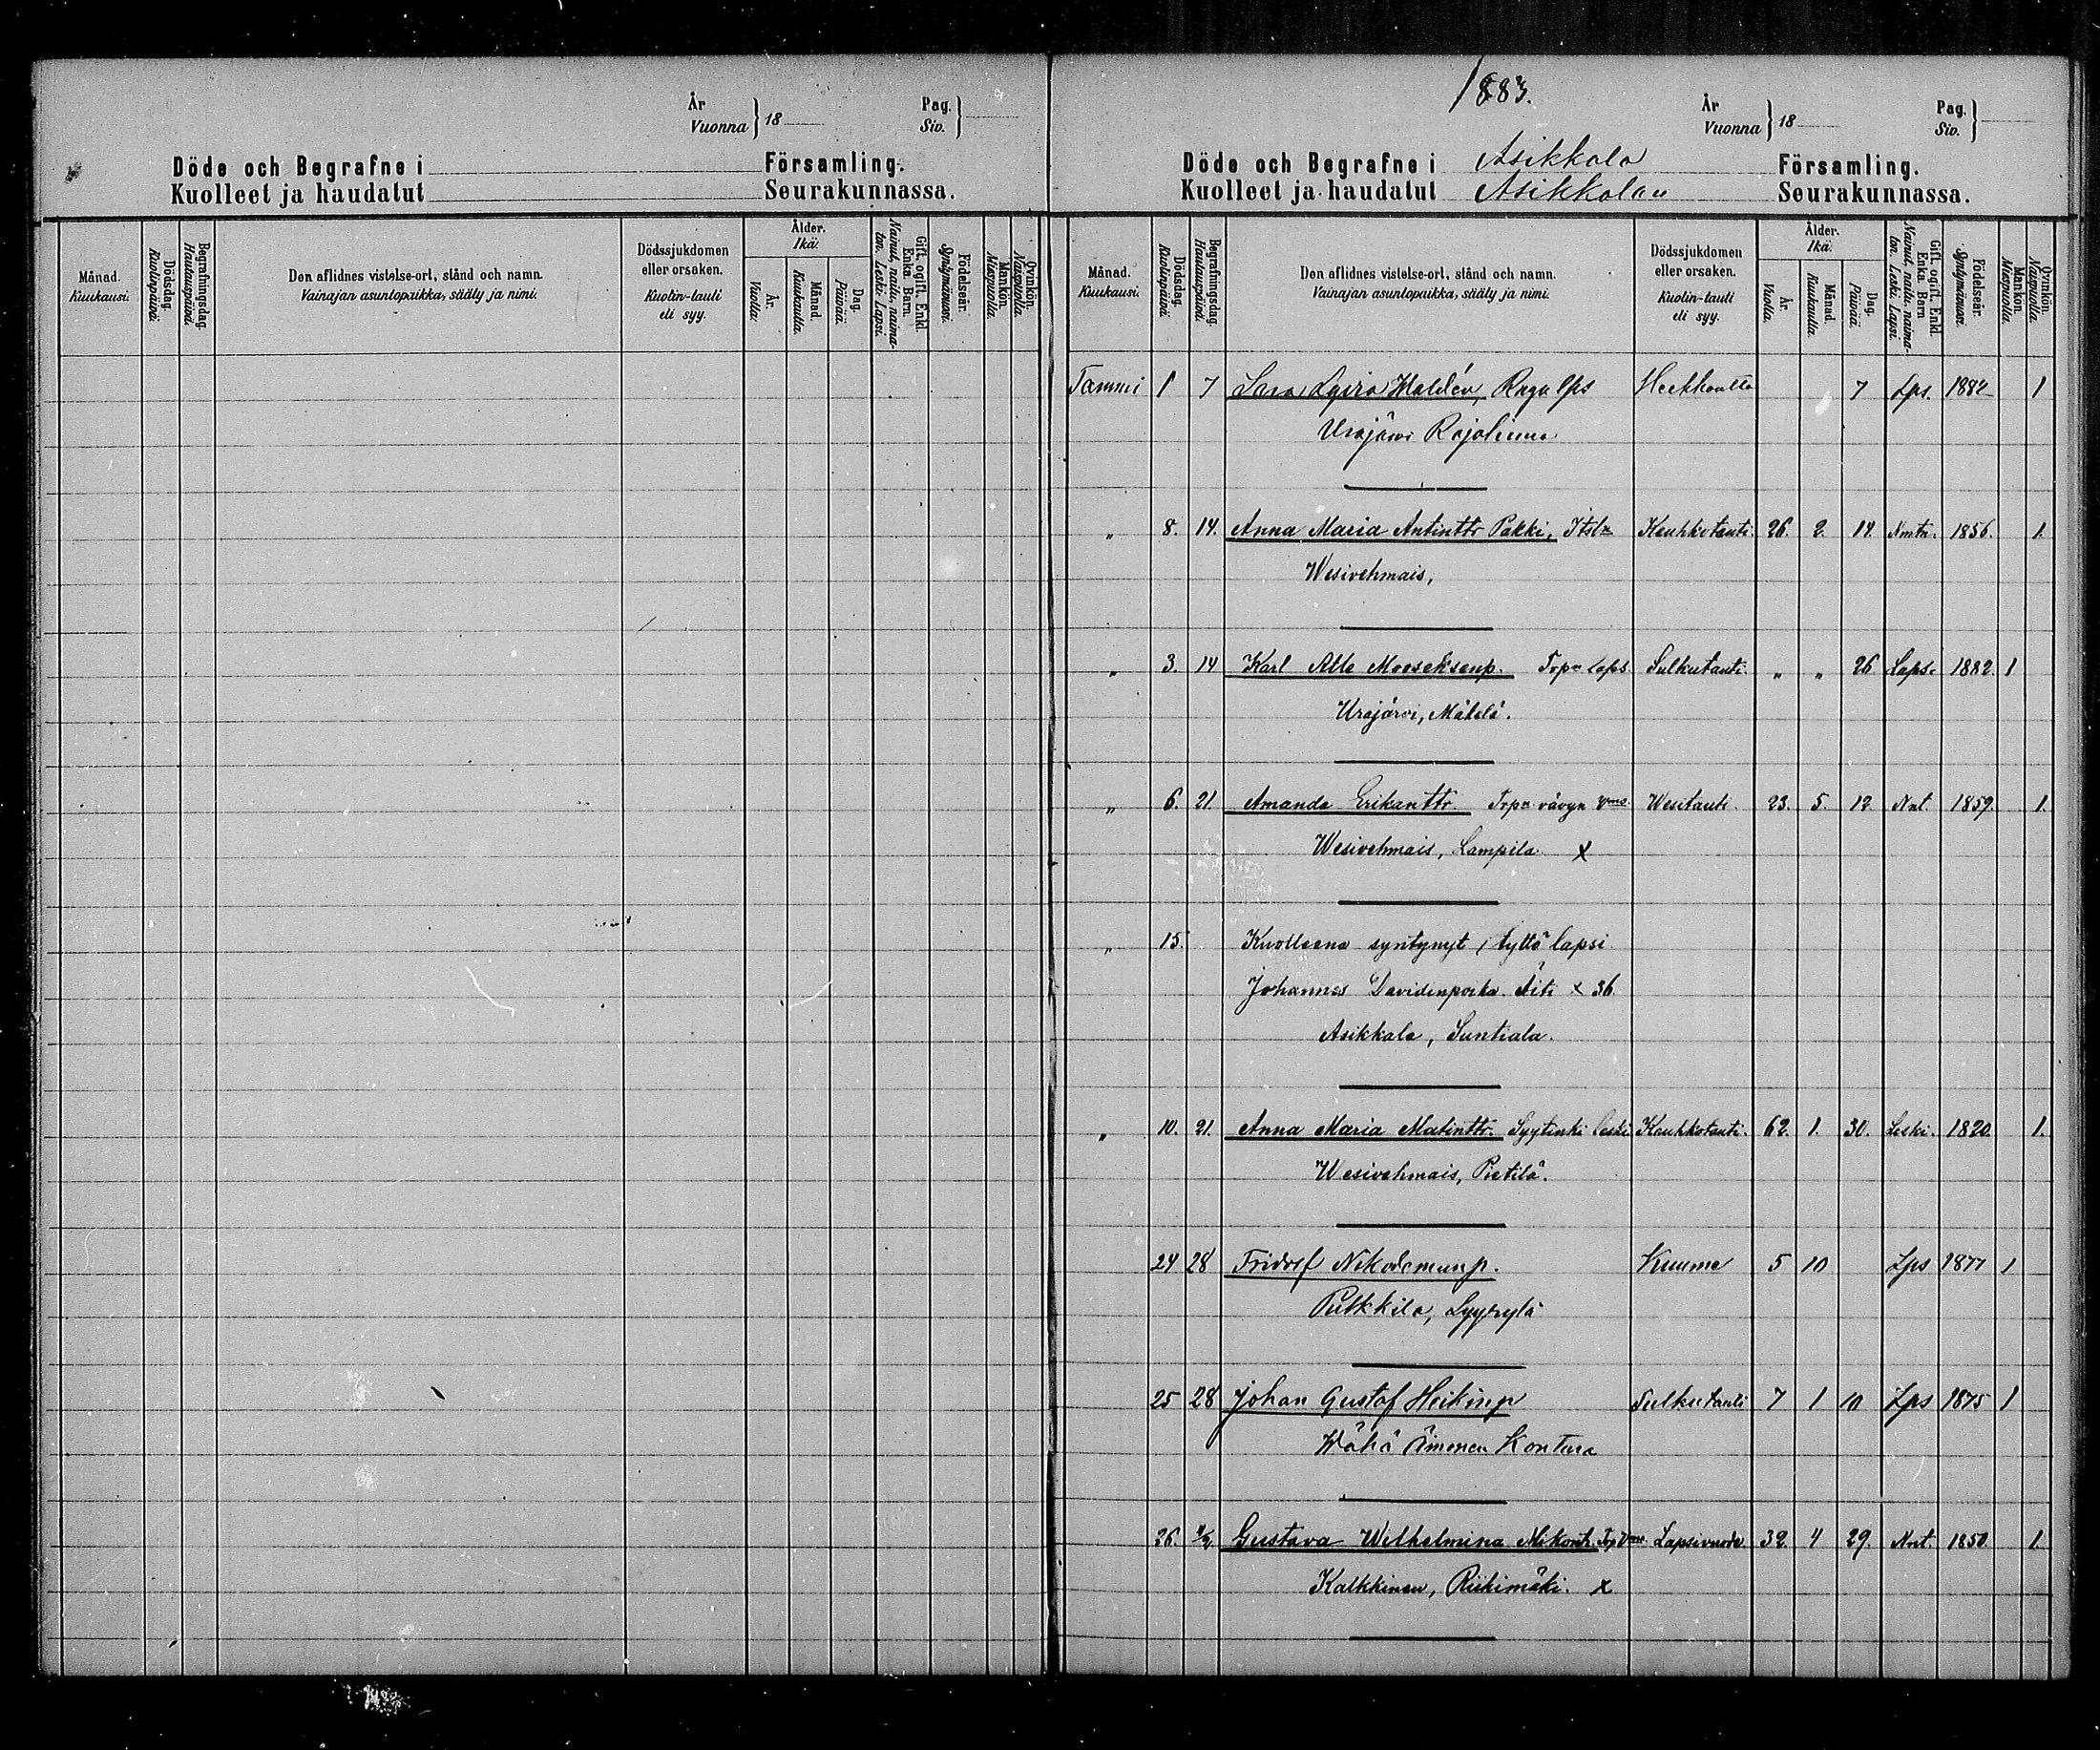 År
Vuonna } 18
Pag.
Siv. }
Döde och Begrafne i Församling.
Kuolleet ja haudatut Seurakunnassa.
Månad. Kuukausi.
Dödsdag. Kuolinpäivä.
Begrafningsdag. Hautauspäivä.
Den aflidnes vistelse-ort, stånd och namn.
Vainajan asuntopaikka, sääty ja nimi.
Dödssjukdomen eller orsaken.
Kuolin-tauti eli syy.
Ålder. Ikä.
År. Vuotta.
Månad. Kuukautta.
Dag. Päivää.
Gift, ogift. Enkl. Enka. Barn.
Nainut, naitu, naimaton. Leski. Lapsi.
Födelseår. Syntymävuosi.
Mankön. Miespuolia.
Qvinkön. Naispuolia.
1883.
År
Vuonna } 18
Pag.
Siv. }
Döde och Begrafne i Asikkala Församling.
Kuolleet ja haudatut Asikkalan Seurakunnassa.
Månad. Kuukausi.
Dödsdag. Kuolinpäivä.
Begrafningsdag. Hautauspäivä.
Den aflidnes vistelse-ort, stånd och namn.
Vainajan asuntopaikka, sääty ja nimi.
Dödssjukdomen eller orsaken.
Kuolin-tauti eli syy.
Ålder. Ikä.
År. Vuotta.
Månad. Kuukautta.
Dag. Päivää.
Gift, ogift. Enkl. Enka. Barn
Nainut, naitu, naimaton. Leski. Lapsi.
Födelseår. Syntymävuosi.
Mankön. Miespuolia.
Qvinkön. Naispuolia.
Tammi 1 7 Sara Waldén, lps 7 Lps. 1882 1
Urajärvi
„ 8. 14. Anna Maria Antinttr Pakki, Itsln Keuhkotauti. 26. 2. 14. Nmtn. 1856. 1.
Wesivehmais,
„ 3. 14 Karl Atle Mooseksenp. Trpn laps. Sulkutauti. „ „ 26 Laps. 1882. 1
Urajärvi, Mäkelä.
„ 6. 21 Amanda Erikanttr. Trpn vävyn vmo. Wesitauti. 23. 5. 12. Nnt. 1859. 1.
Wesivehmais, Lampila x
„ 15. Kuolleena syntynyt, tyttö lapsi
Johannes Davidinpoika. Äiti x 36.
Asikkala, Suntiala.
„ 10. 21. Anna Maria Matinttr. Syytinki leski Keuhkotauti. 62. 1. 30. Leski. 1820. 1.
Wesivehmais, Pietilä.
24 28 Fridolf Nikodemunp. Kuume 5 10 Lps 1877 1
Pulkkila, Lyytylä
25 28 Johan Gustaf Heikinp Sulkutauti 7 1 10 Lps 1875 1
Wähä Äinonen Kontura
26. 4/2 Gustava Wilhelmina Mikontr. Trp Vmo Lapsivuode 32. 4 29. Nnt. 1850. 1.
Kalkkinen, Riihimäki. x